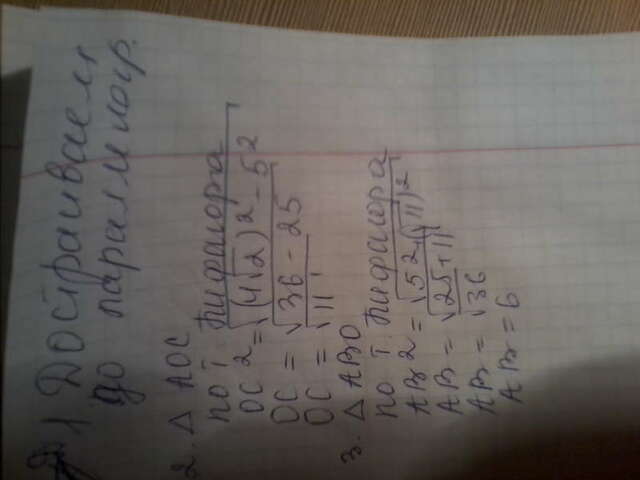 1 Достраиваем
до параллелогр.
2. △ AOC
по т. Пифагора
OC 2 = √(4√2)² - 5²
OC = √36 - 25
OC = √11
3. △ ABO
по т. Пифагора
AB 2 = √5² + (√11)²
AB = √25 + 11
AB = √36
AB = 6